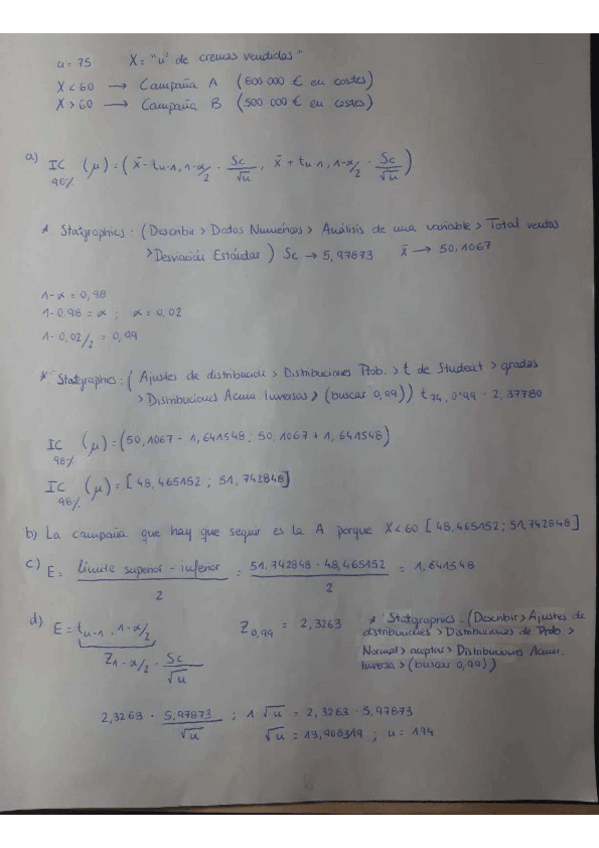 n = 75 X = "nº de cremas vendidas"
X < 60 → Campaña A (600 000 € en costes)
X > 60 → Campaña B (500 000 € en costes)
a) IC 98% (μ) = ( x̄ - t n-1, 1-α/2 · Sc/√n , x̄ + t n-1, 1-α/2 · Sc/√n )
* Statgraphics: (Describir > Datos Numéricos > Análisis de una variable > Total ventas
> Desviación Estándar) Sc → 5,97873 x̄ → 50,1067
1-α = 0,98
1-0,98 = α ; α = 0,02
1- 0,02/2 = 0,99
* Statgraphics: ( Ajustes de distribución > Distribuciones Prob. > t de Student > grados
> Distribuciones Acum. Inversas > (buscar 0,99)) t 74, 0'99 = 2,37780
IC 98% (μ) = (50,1067 - 1,641548 ; 50,1067 + 1,641548)
IC 98% (μ) = [48,465152 ; 51,742848]
b) La campaña que hay que seguir es la A porque X < 60 [48,465152 ; 51,742848]
c) E = límite superior - inferior / 2 = 51,742848 - 48,465152 / 2 = 1,641548
d) E = t n-1, 1-α/2 Z 0,99 = 2,3263 * Statgraphics: (Describir > Ajustes de
distribuciones > Distribuciones de Prob >
Z 1-α/2 · Sc/√n Normal > aceptar > Distribuciones Acum.
Inversa > (buscar 0,99))
2,3263 · 5,97873/√n ; 1 √n = 2,3263 · 5,97873
√n = 13,908319 ; n = 194